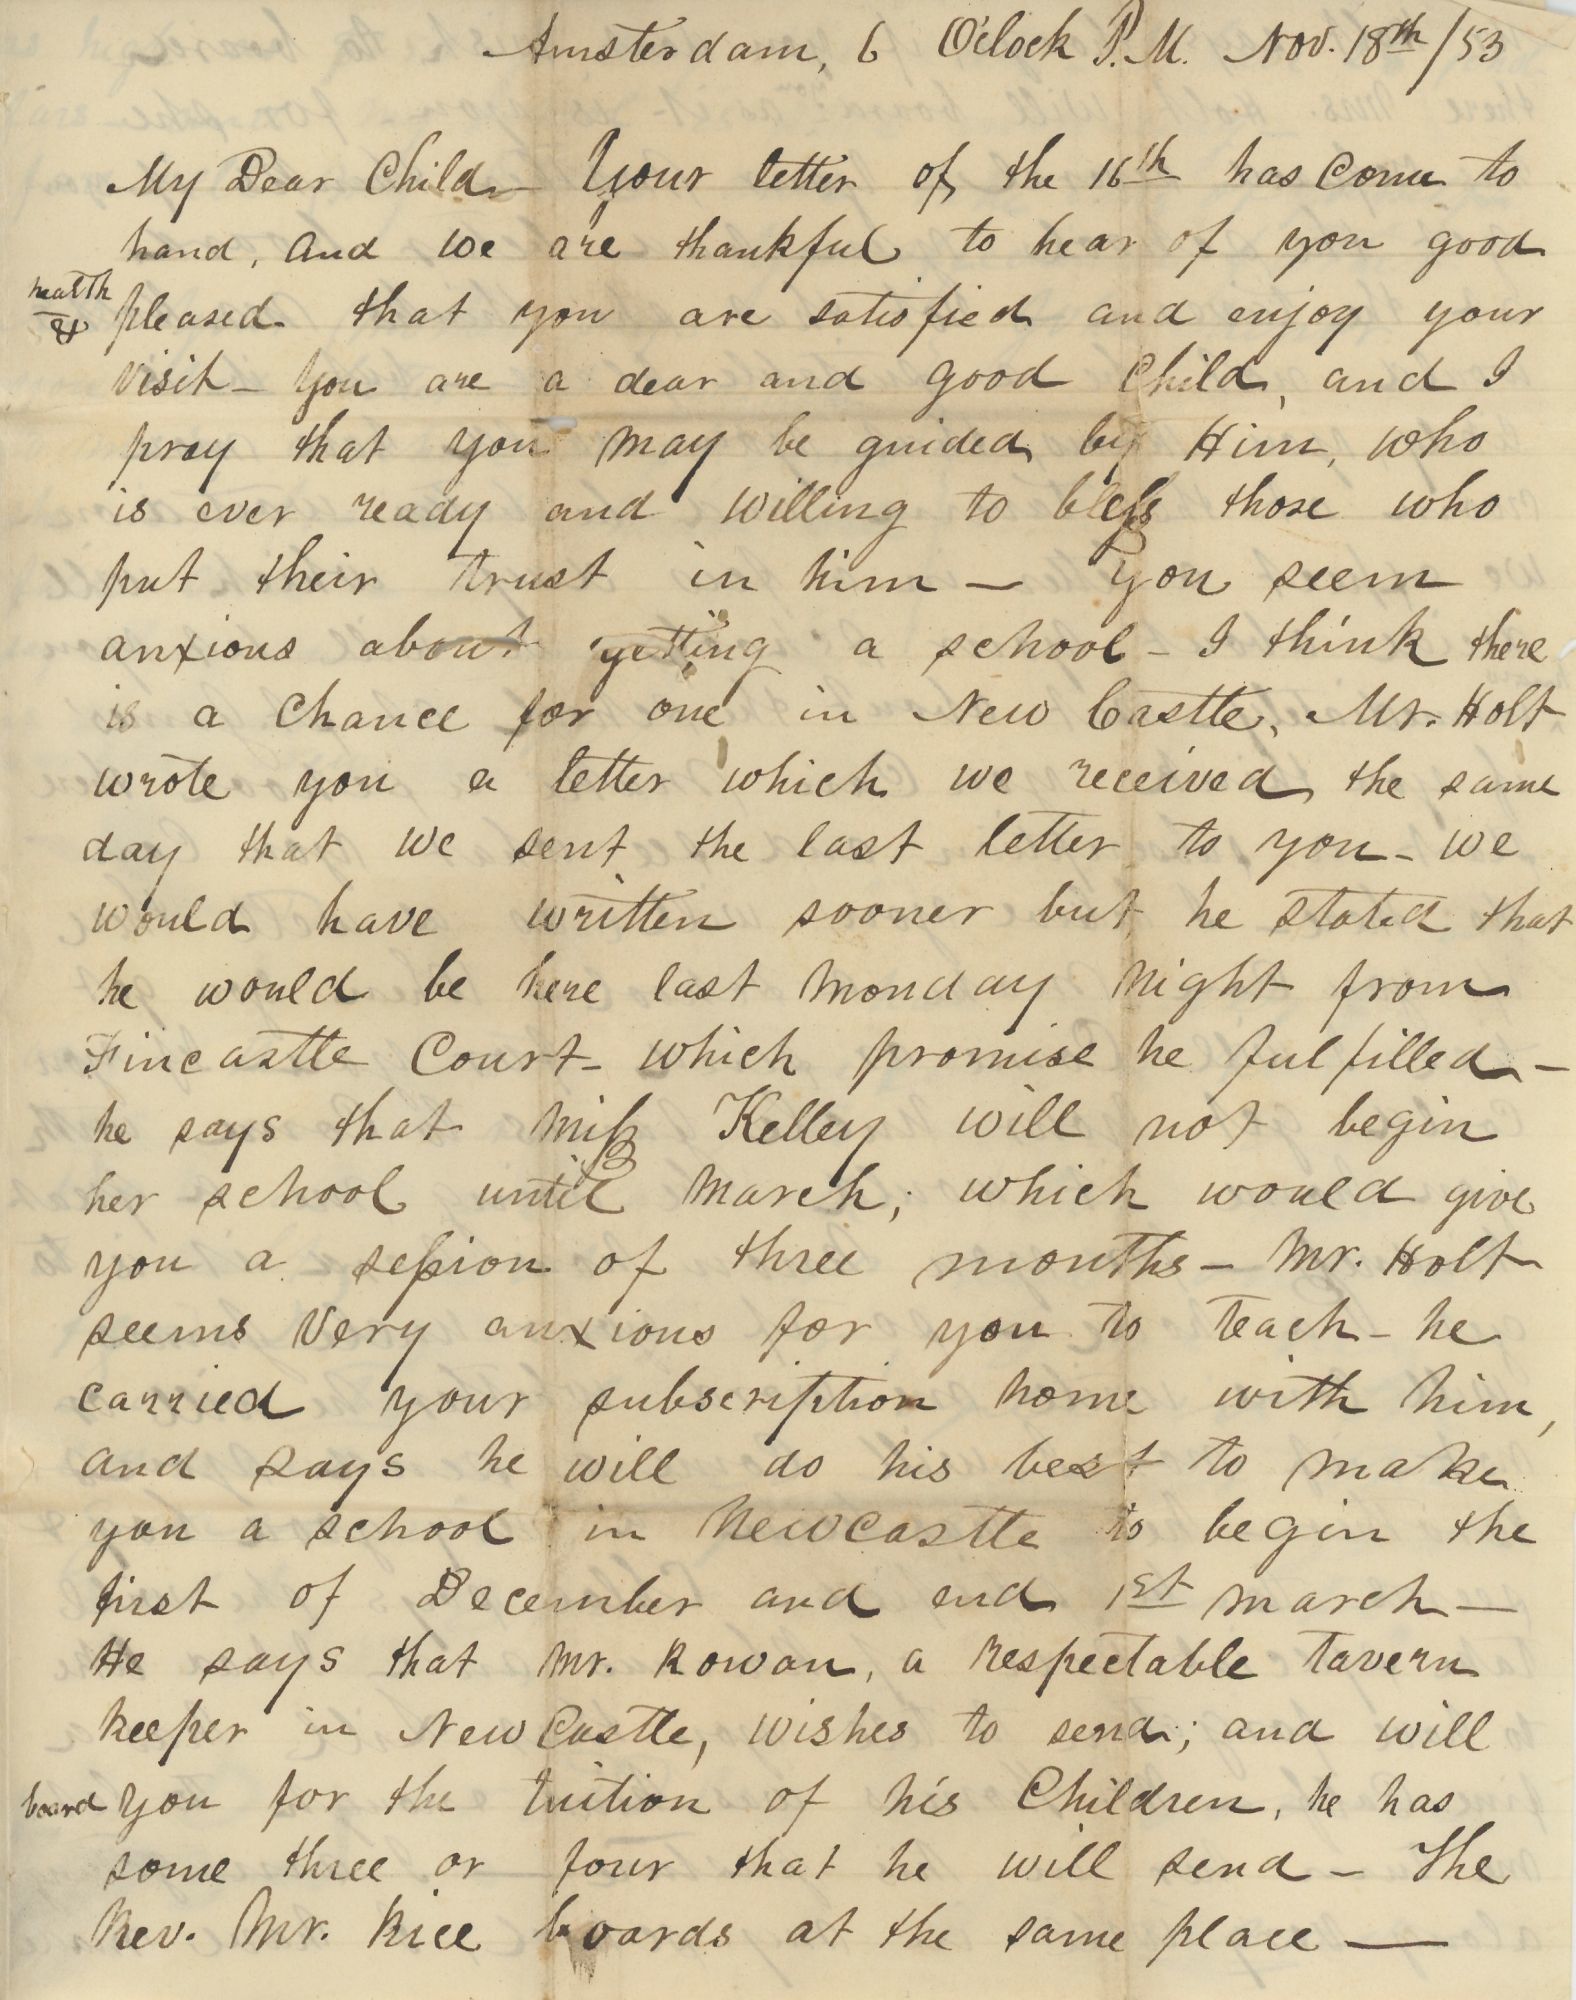 Amsterdam, 6 O'clock P.M. Nov. 18th/53
My Dear Child - Your letter of the 16th has come to
hand, and we are thankful to hear of you good
health & pleased that you are satisfied and enjoy your
visit - You are a dear and good child, and I
pray that you may be guided by Him, who
is ever ready and willing to bless those who
put their trust in him - You seem
anxious about getting a school - I think there
is a chance for one in New Castle, Mr. Holt
wrote you a letter which we received the same
day that we sent the last letter to you - we
would have written sooner but he stated that
he would be here last monday night from
Fincastle Court - which promise he fulfilled -
he says that miss Kelley will not begin
her school until March; which would give
you a session of three months - Mr. Holt
seems very anxious for you to teach - he
carried your subscription home with him,
and says he will do his best to make
you a school in Newcastle to begin the
first of December and end 1st march -
He says that Mr. Rowan, a respectable tavern
keeper in New Castle, wishes to send; and will
board you for the tuition of his Children, he has
some three or four that he will send - The
Rev. Mr. Rice boards at the same place -